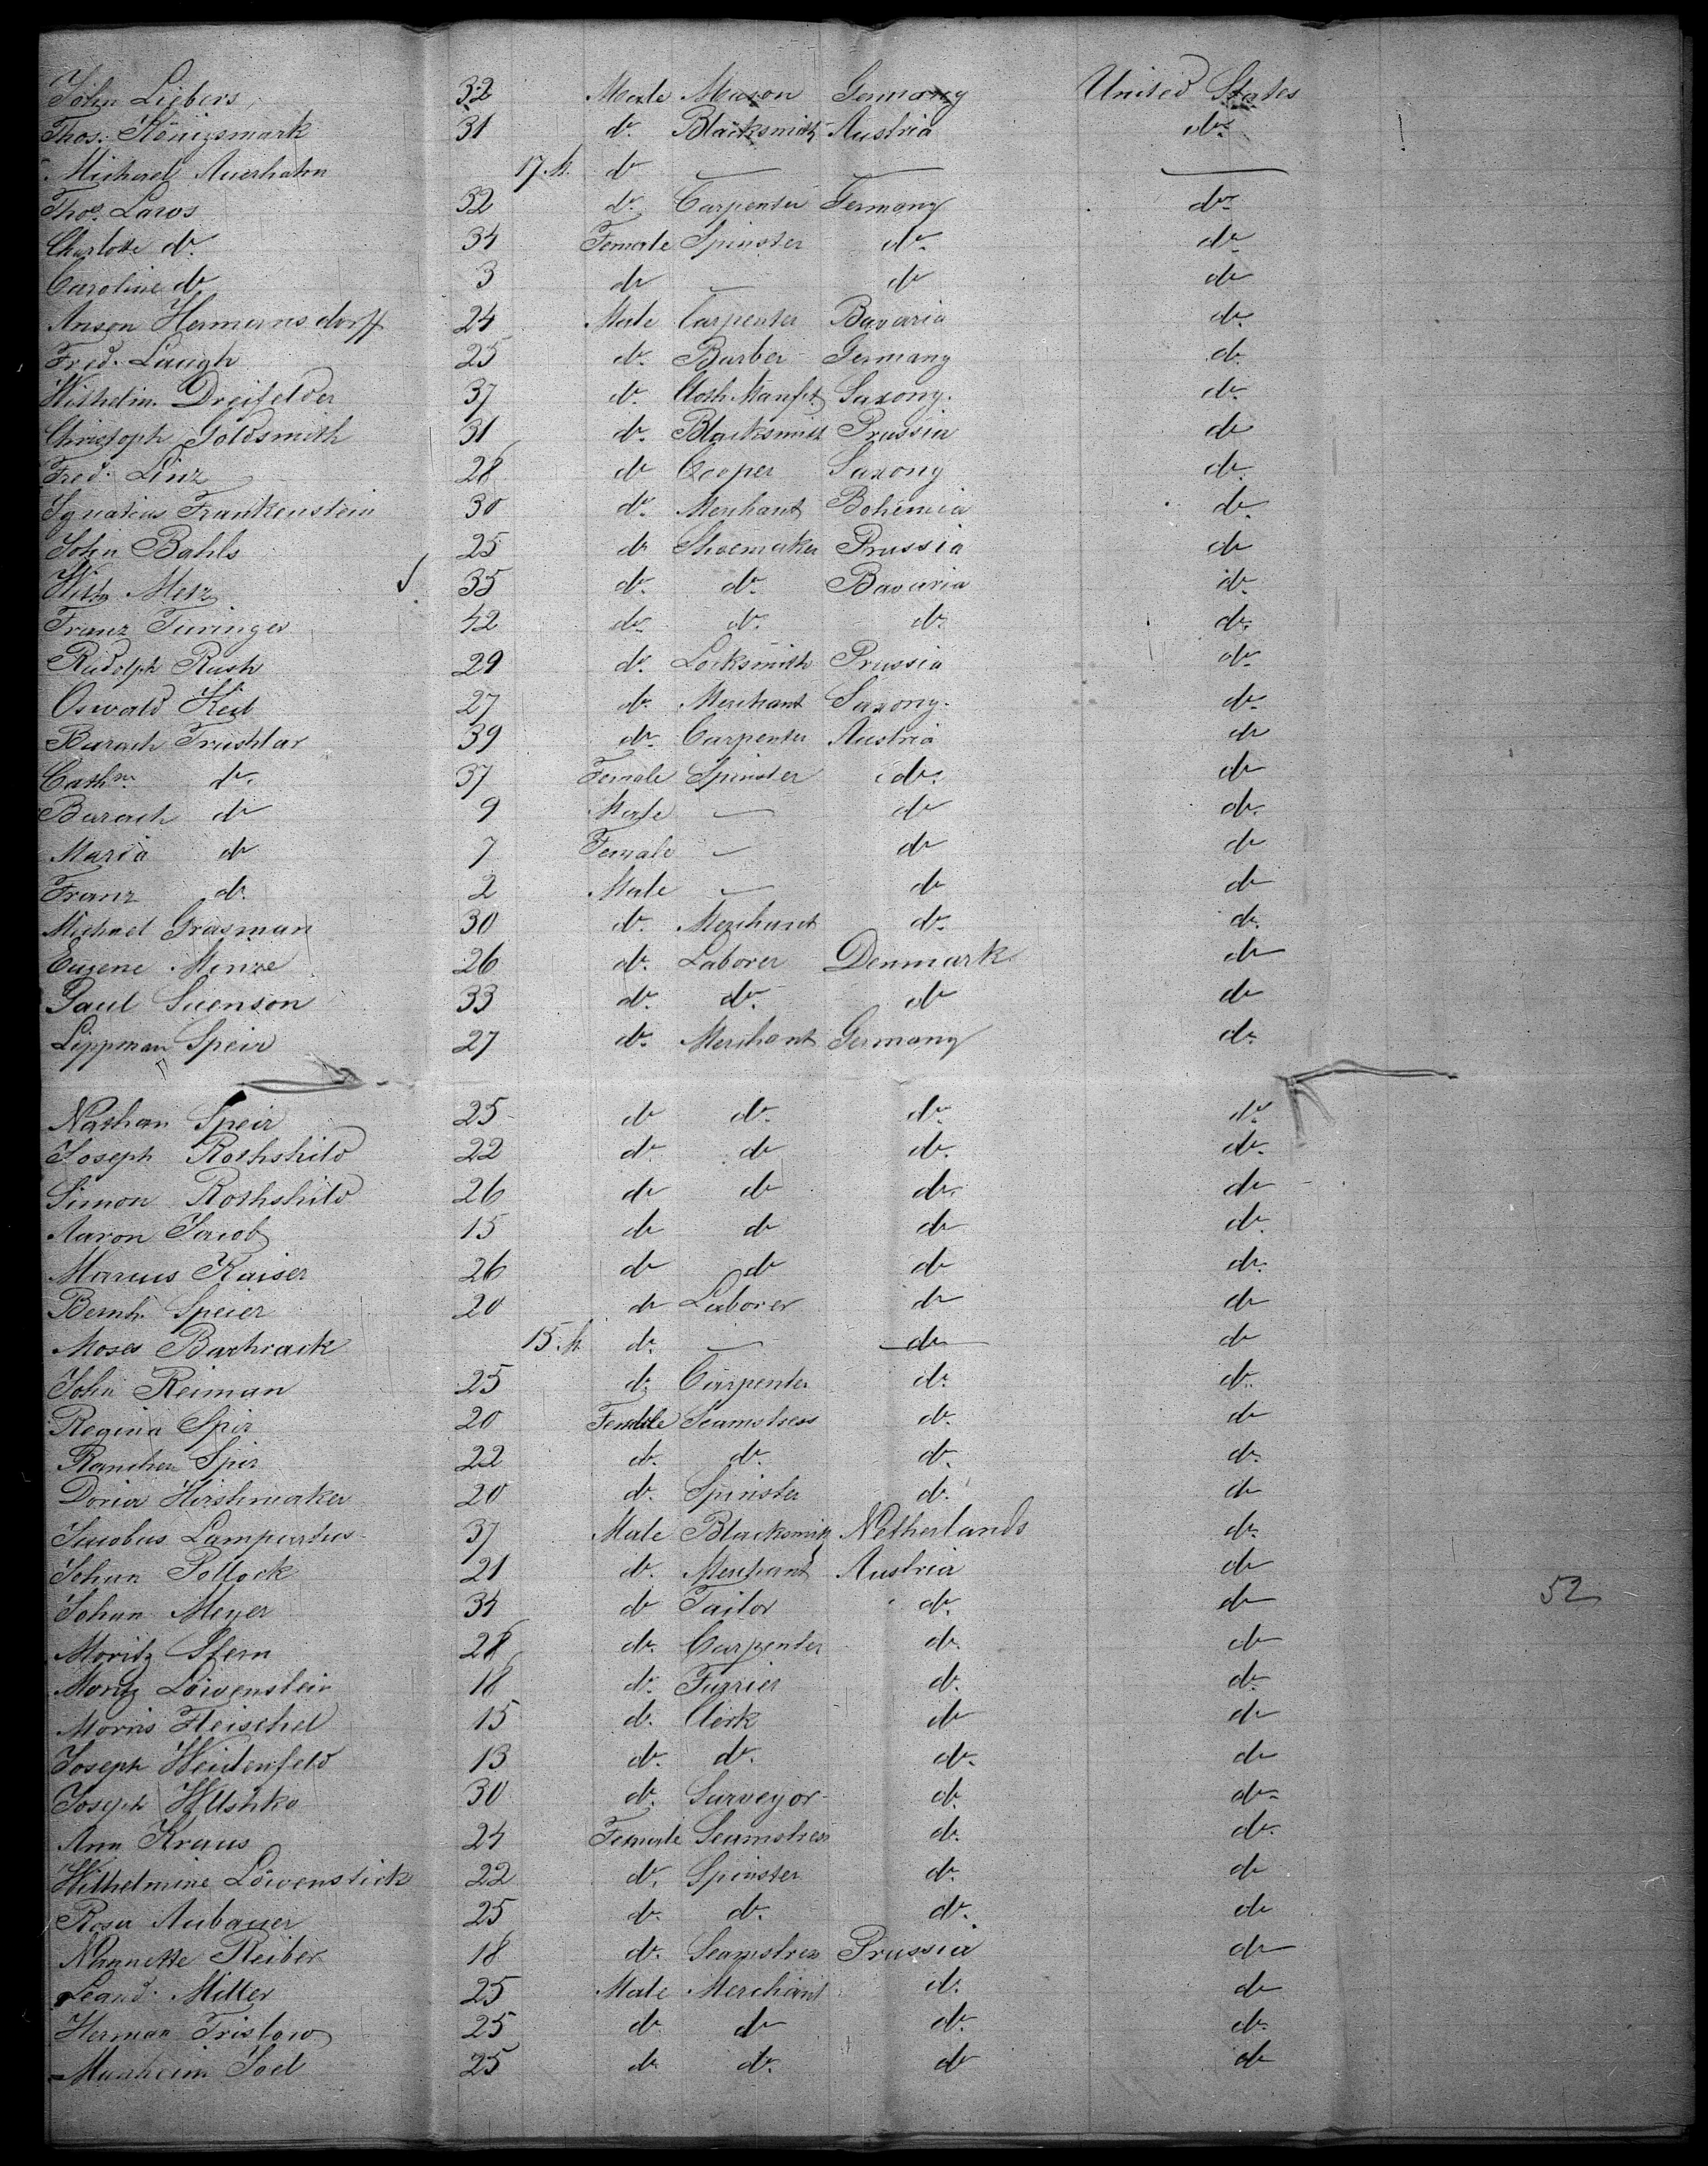 John Liebers 32 Male Mason Germany United States
Thos. Königsmark 31 do. Blacksmith Austria do.
Michael Auerhahn 17. M. do — — —
Thos. Laros 32 do. Carpenter Germany do.
Charlotte do. 34 Female Spinster do. do.
Caroline do 3 do — do do
Anson Hermansdorff 24 Male Carpenter Bavaria do.
Fred. Laugh 25 do. Barber Germany do.
Wilhelm. Dreifelder 37 do. Cloth Manfct. Saxony. do.
Christoph Goldsmith 31 do. Blacksmith Prussia do
Fred. Linz 28 do Cooper Saxony do.
Ignatius Frankenstein 30 do. Merchant Bohemia do.
John Bahls 25 do Shoemaker Prussia do
Wilh. Metz 35 do. do. Bavaria do.
Franz Turinger 42 do. do. do. do.
Rudolph Rush 29 do. Locksmith Prussia do.
Oswald Keil 27 do. Merchant Saxony. do.
Barach Trushlar 39 do. Carpenter Austria do
Cathn. do. 37 Female Spinster do. do
Barach do 9 Male — do do.
Maria do 7 Female — do do
Franz do. 2 Male — do do
Michael Grasman 30 do. Merchant do. do.
Eugene Minze 26 do. Laborer Denmark do
Paul Suenson 33 do. do. do do
Lippman Speir 27 do. Merchant Germany do.
Nathan Speir 25 do do. do. do.
Joseph Rothshild 22 do. do do. do.
Simon Rothshild 26 do do do. do
Aaron Jacob 15 do do do do.
Marcus Kaiser 26 do do do do.
Bernh. Speier 20 do Laborer do do
Moses Bachrack 15. M do. — do do
John Reiman 25 do. Carpenter do. do.
Regina Spir 20 Female Seamstress do. do
Ranchen Spir 22 do. do. do. do.
Doria Hirshmaker 20 do. Spinster do. do
Jacobus Lampartus 37 Male Blacksmith Netherlands do.
Johan Pollock 21 do. Merchant Austria do
Johan Meyer 34 do Tailor do. do 52
Moritz Stern 28 do. Carpenter do. do
Moritz Löwenstein 18 do. Furrier do. do.
Morris Fleischel 15 do. Clerk do do
Joseph Weidenfeld 13 do. do. do. do
Joseph Wushka 30 do. Surveyor do. do.
Ann Kraus 24 Female Seamstress do. do.
Wilhelmine Löwenstirk 22 do. Spinster do. do
Rosa Aubauer 25 do. do. do. do
Nannette Reiber 18 do. Seamstress Prussia do
Leand. Miller 25 Male Merchant do. do
Herman Tristow 25 do. do do. do.
Manheim Joel 25 do. do. do do